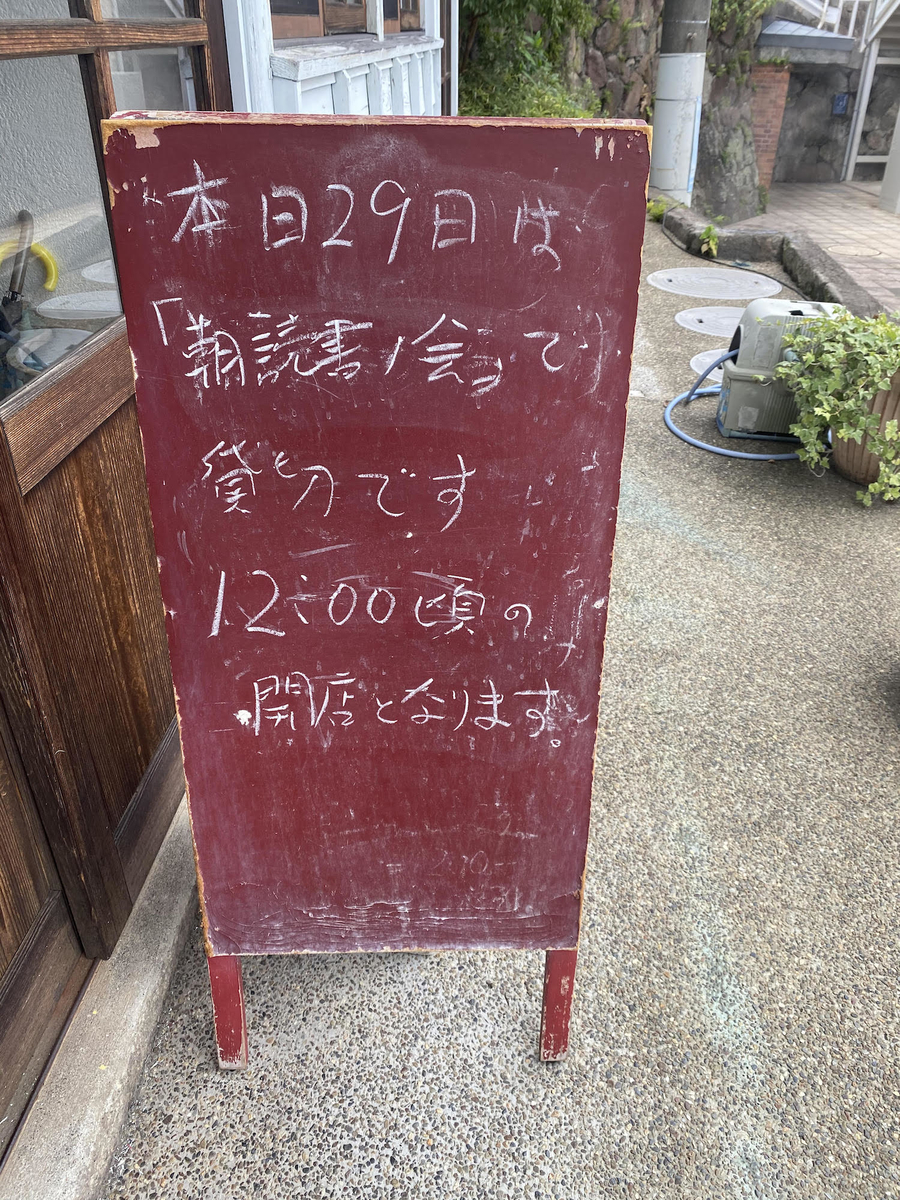 本日29日は
「朝読書ノ会」です
貸切です
12:00頃の
開店となります。